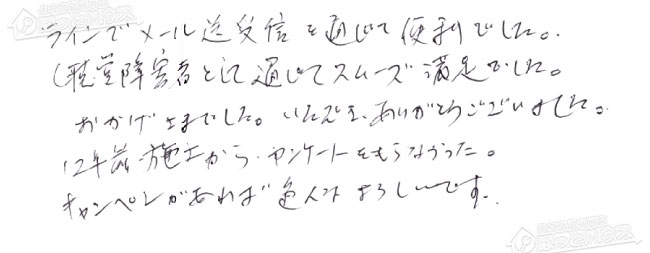 ラインでメール送受信を通じて便利でした。
(聴覚障害者として通じてスムーズ満足でした。
おかげさまでした。いただき、ありがとうございました。
12年前施工から、アンケートをもらなかった。
キャンペンがあれば よろしいです。